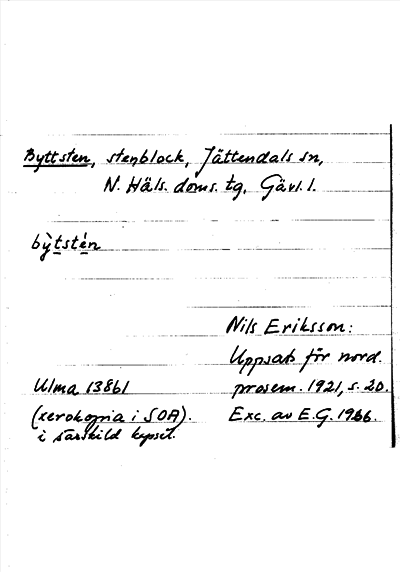 Byttsten, stenblock, Jättendals sn,
N. Häls. doms. tg, Gävl. l.
bỳtstén
Nils Eriksson:
Uppsats för nord.
Ulma 13861 prosem. 1921, s. 20.
(xerokopia i SOA). Exc. av E.G. 1966.
i särskild kapsel.